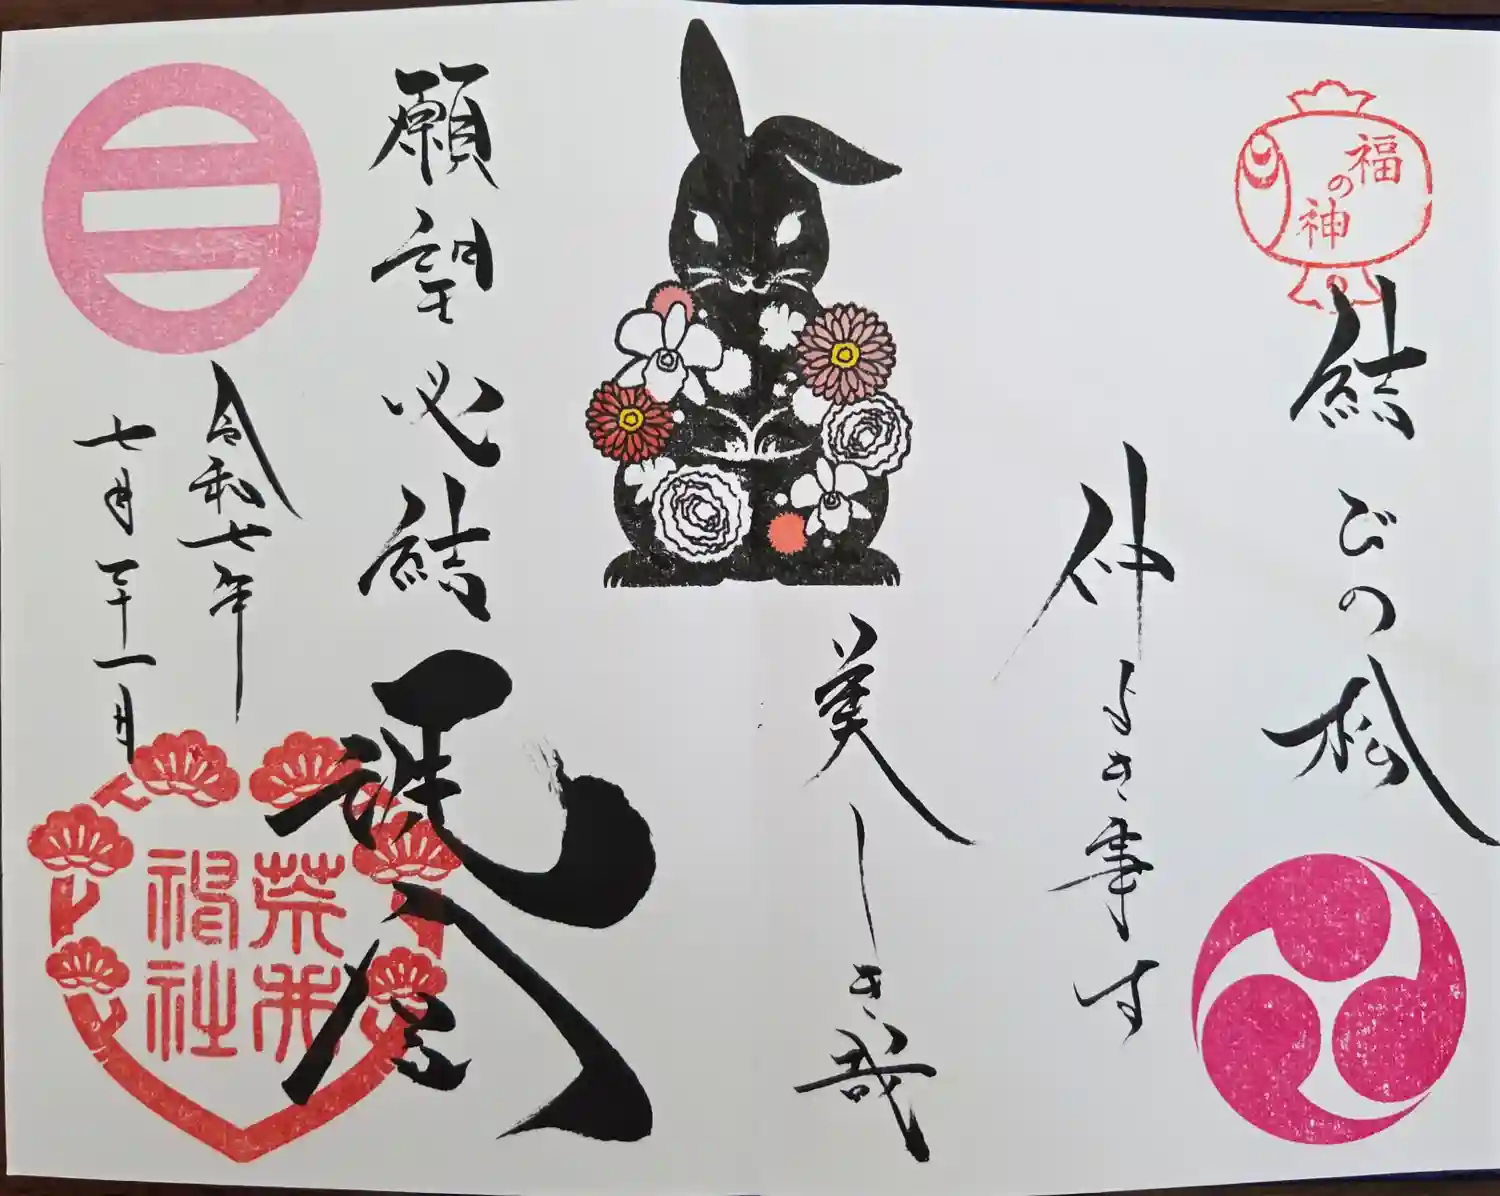 福の神
結びの松
仲よき事は
美しき哉
願望必結
令和七年
七月三十一日
荒井
神社